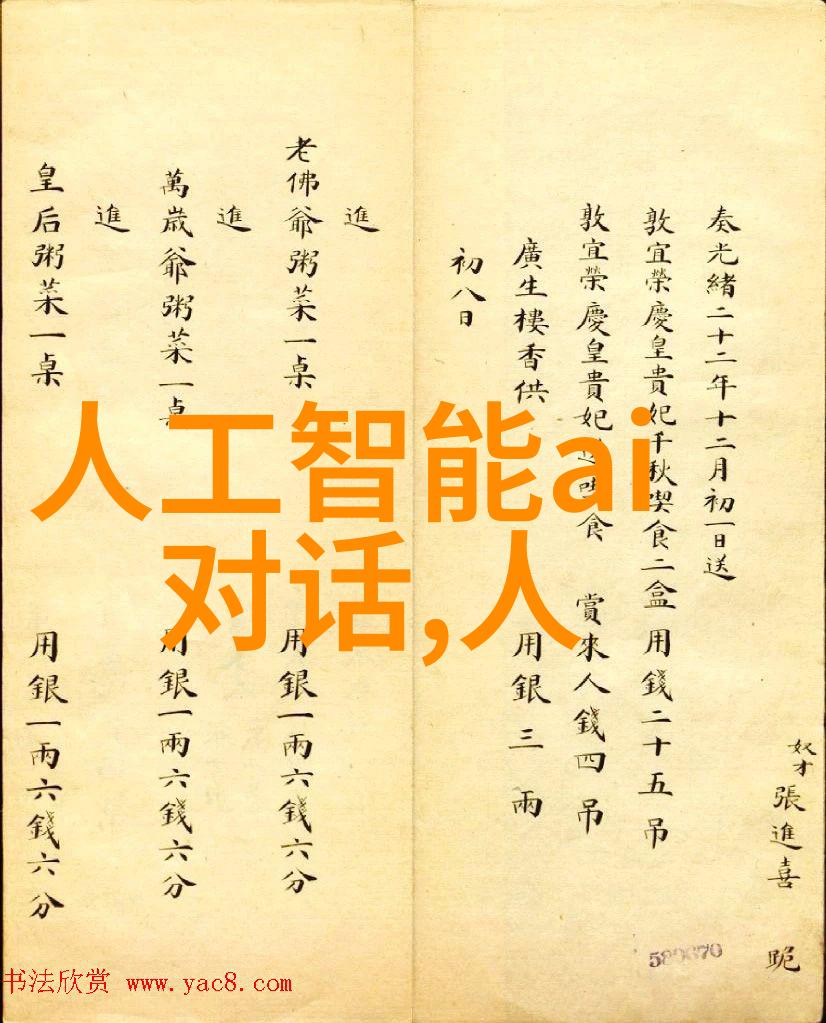 奴才張進喜 跪
奏光緒二十二年十二月初一日送
敦宜榮慶皇貴妃千秋喫食二盒用錢二十五吊
敦宜榮慶皇貴妃 食 賞來人錢四吊
廣生樓香供 用銀三兩
初八日
進
老佛爺粥菜一桌 用銀一兩六錢六分
進
萬歲爺粥菜一桌 用銀一兩六錢六分
進
皇后粥菜一桌 用銀一兩六錢六分
人工智能ai
对话,人
书法欣赏 www.yac8.com